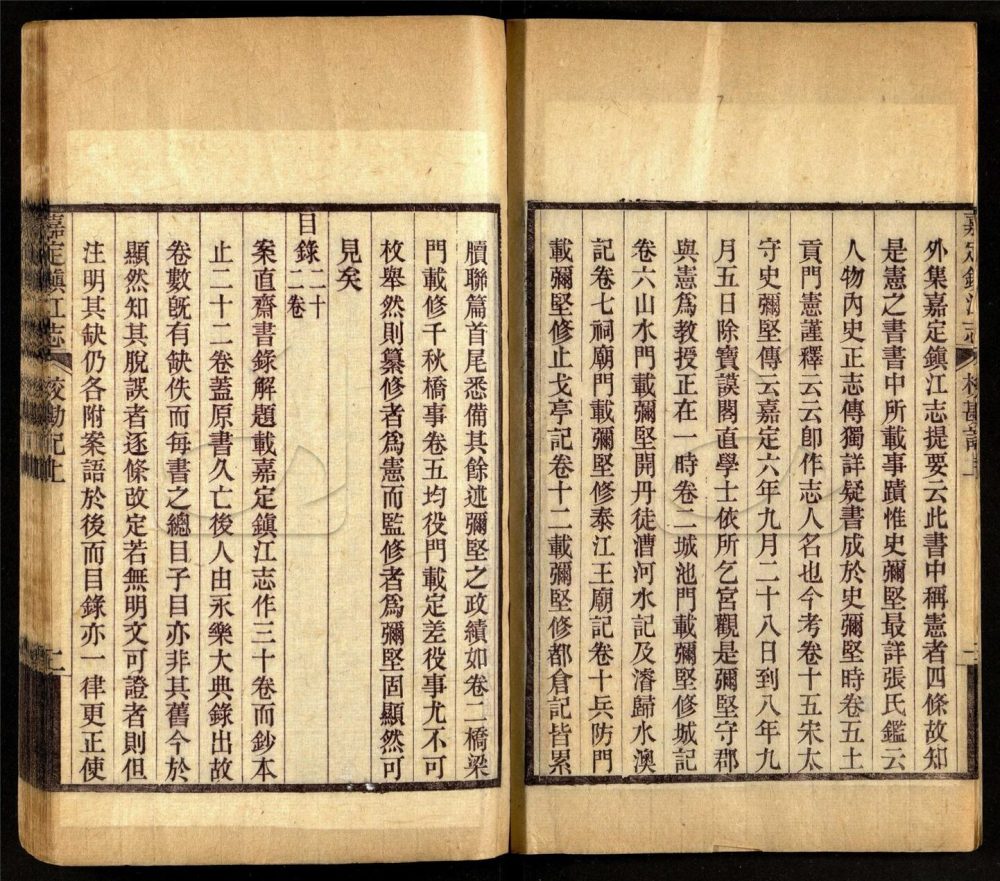 嘉定鎮江志 校勘記上 二
外集嘉定鎮江志提要云此書中稱憲者四條故知
是憲之書書中所載事蹟惟史彌堅最詳張氏鑑云
人物內史正志傳獨詳疑書成於史彌堅時卷五土
貢門憲謹釋云云卽作志人名也今考卷十五宋太
守史彌堅傳云嘉定六年九月二十八日到八年九
月五日除寶謨閣直學士依所乞宮觀是彌堅守郡
與憲爲教授正在一時卷二城池門載彌堅修城記
卷六山水門載彌堅開丹徒漕河水記及濬歸水澳
記卷七祠廟門載彌堅修泰江王廟記卷十兵防門
載彌堅修止戈亭記卷十二載彌堅修都倉記皆累
牘聯篇首尾悉備其餘述彌堅之政績如卷二橋梁
門載修千秋橋事卷五均役門載定差役事尤不可
枚舉然則纂修者爲憲而監修者爲彌堅固顯然可
見矣
目錄二十二卷
案直齋書錄解題載嘉定鎮江志作三十卷而鈔本
止二十二卷蓋原書久亡後人由永樂大典錄出故
卷數旣有缺佚而每書之總目子目亦非其舊今於
顯然知其脫誤者逐條改定若無明文可證者則但
注明其缺仍各附案語於後而目錄亦一律更正使
嘉定鎮江志 校勘記上 二